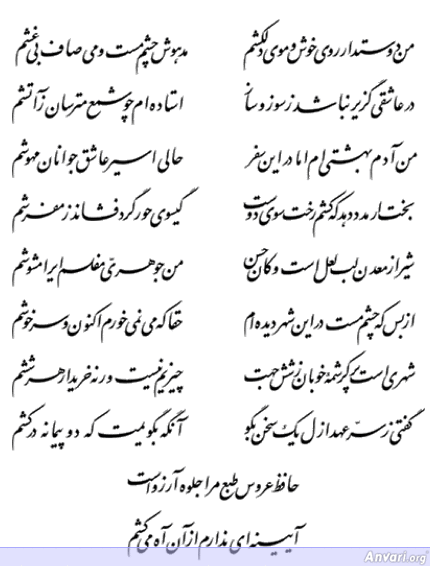 من دوستدار روی خوش و موی دلکشم مدهوش چشم مست و می صاف بی غشم
در عاشقی گزیر نباشد ز سوز و ساز استاده ام چو شمع مترسان ز آتشم
من آدم بهشتی ام اما در این سفر حالی اسیر عشق جوانان مهوشم
بخت ار مدد دهد که کشم رخت سوی دوست گیسوی حور گرد فشاند ز مفرشم
شیراز معدن لب لعل است و کان حسن من جوهری مفلسم ایرا مشوشم
از بس که چشم مست در این شهر دیده ام حقا که می نمی خورم اکنون و سرخوشم
شهری است پر کرشمه خوبان ز شش جهت چیزیم نیست ور نه خریدار هر ششم
گفتی ز سر عهد ازل یک سخن بگو آنگه بگویمت که دو پیمانه درکشم
حافظ عروس طبع مرا جلوه آرزوست
آیینه ای ندارم از آن آه می کشم
Anvari.org